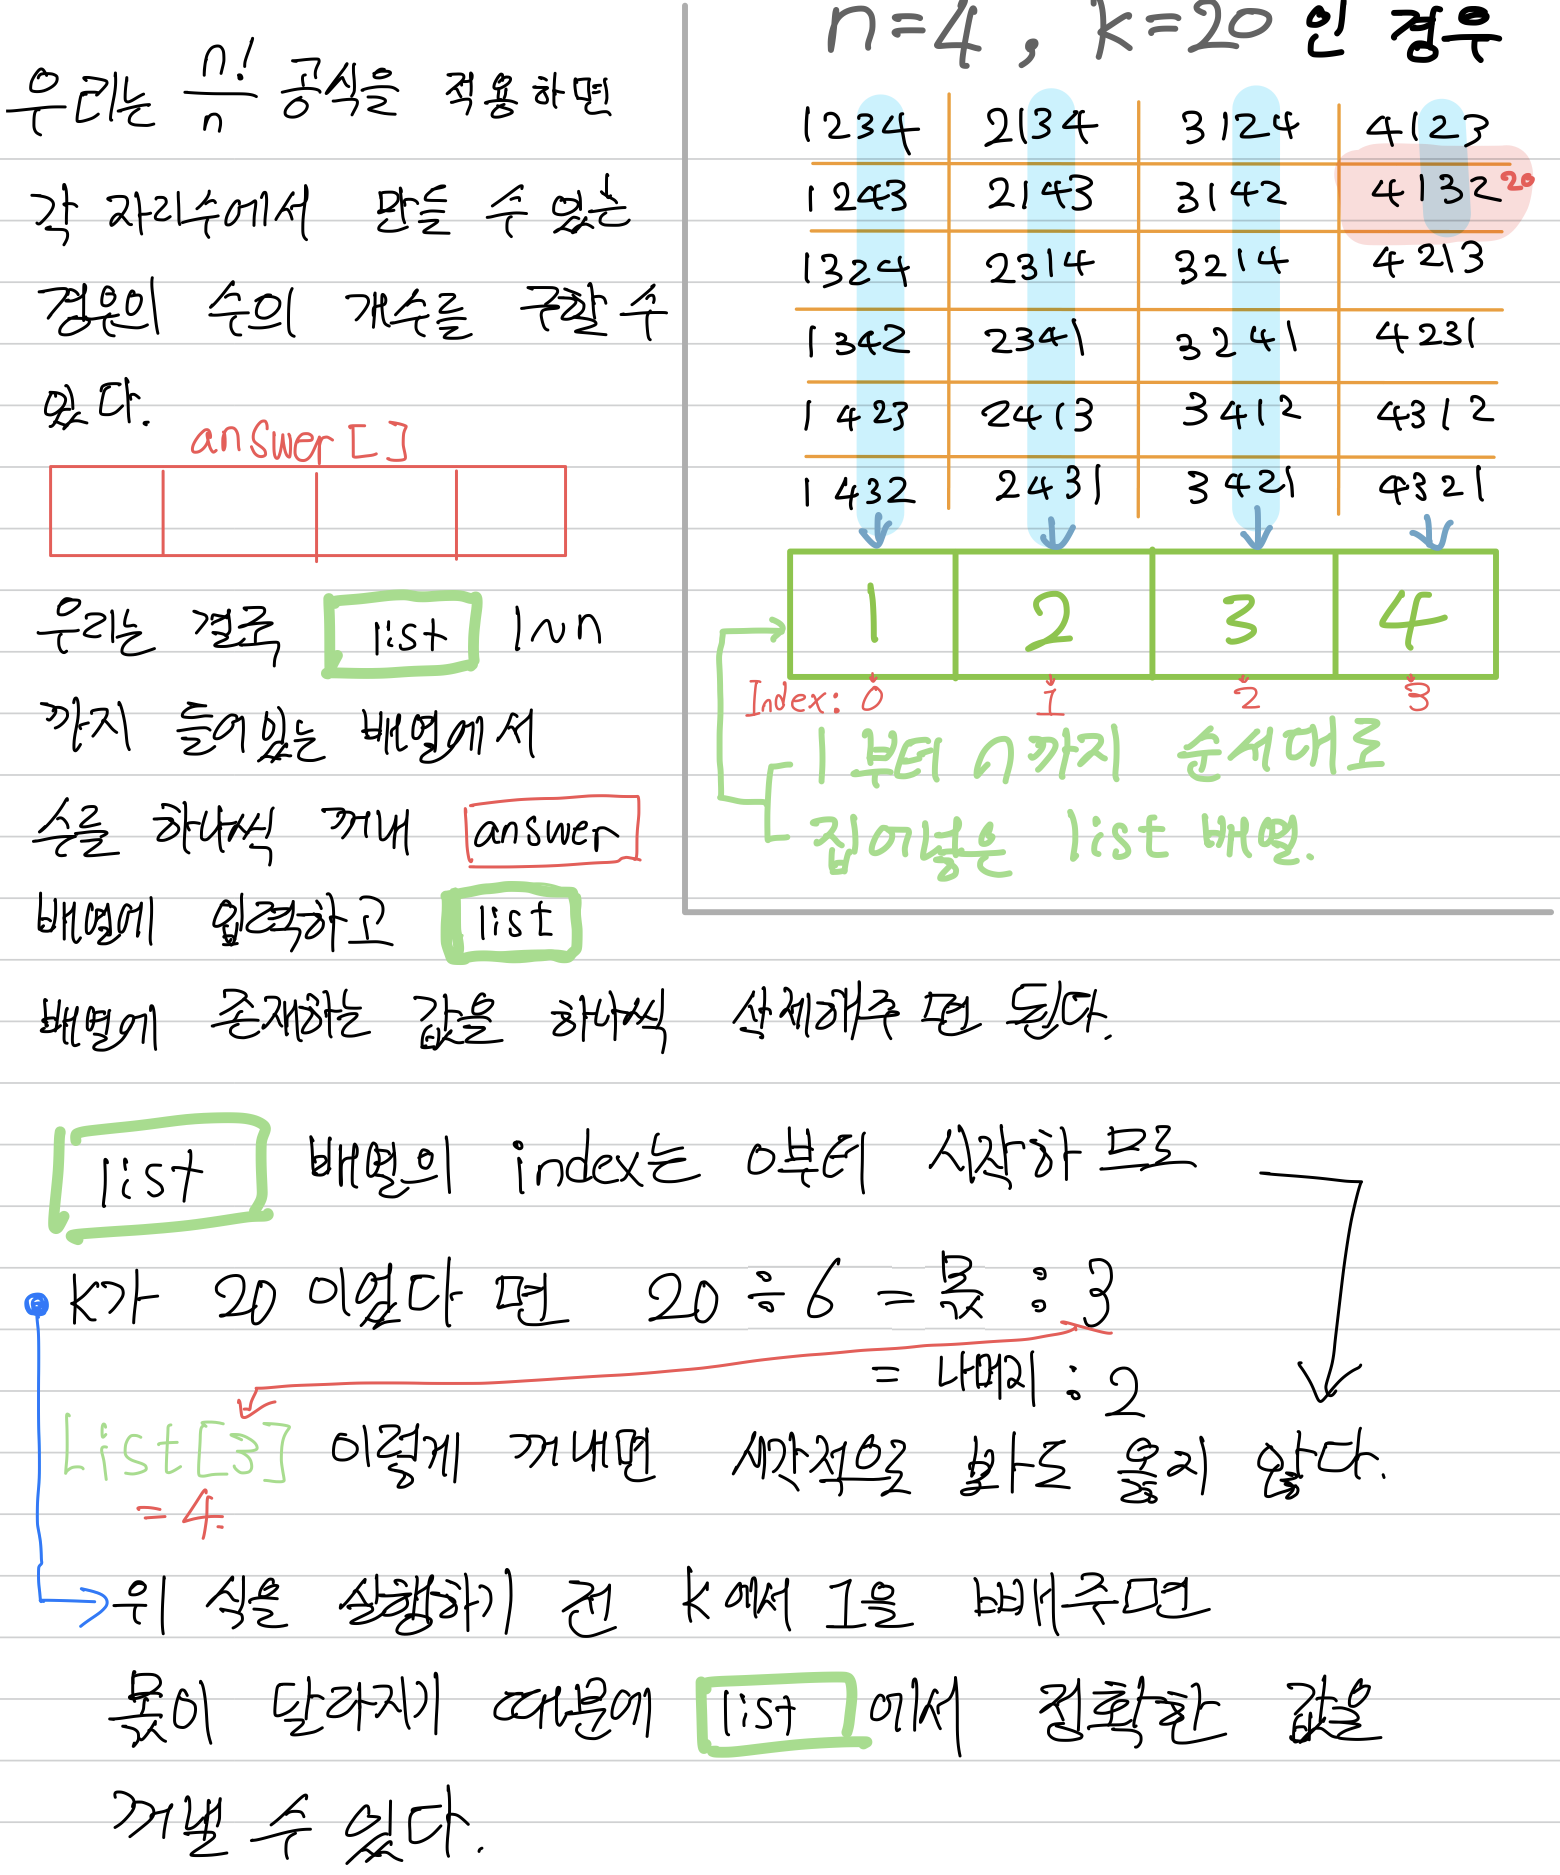 우리는 n!/n 공식을 적용하면
각 자리수에서 만들 수 있는
경우의 수의 개수를 구할 수
있다.
answer[]
우리는 결국 list 1~n
까지 들어있는 배열에서
수를 하나씩 꺼내 answer
배열에 입력하고 list
배열에 존재하는 값을 하나씩 삭제해주면 된다.
n=4, k=20 인 경우
1234 2134 3124 4123
1243 2143 3142 4132 20
1324 2314 3214 4213
1342 2341 3241 4231
1423 2413 3412 4312
1432 2431 3421 4321
1 2 3 4
Index: 0 1 2 3
1부터 n까지 순서대로
집어넣은 list 배열.
list 배열의 index는 0부터 시작하므로
K가 20 이었다면 20 ÷ 6 = 몫 : 3
= 나머지 : 2
List[3] 이렇게 꺼내면 시각적으로 봐도 옳지 않다.
= 4.
위 식을 실행하기 전 k에서 1을 빼주면
몫이 달라지기 때문에 list에서 정확한 값을
꺼낼 수 있다.